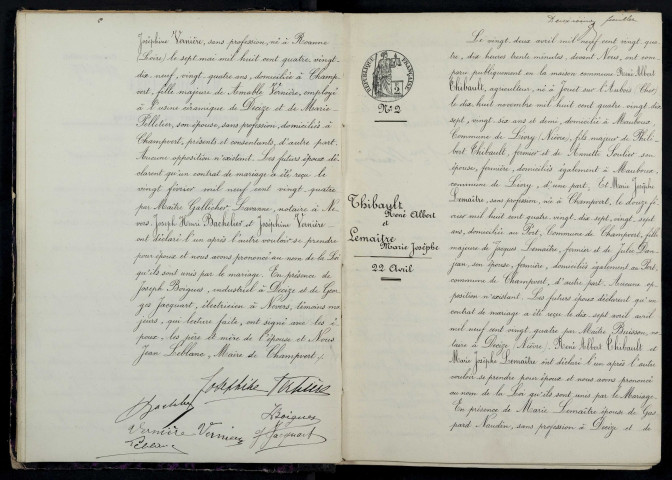 Joséphine Vernière, sans profession, né à Roanne
(Loire) le sept mai mil huit cent quatre, vingt-
dix neuf, vingt-quatre ans, domiciliée à Champ-
vert, fille majeure de Amable Vernière, employé
à l'usine céramique de Decize et de Marie
Pelletier, son épouse, sans profession, domiciliés à
Champvert, présents et consentants, d'autre part.
Aucune opposition n'existant. Les futurs époux dé-
clarent qu'un contrat de mariage a été reçu le
vingt février mil neuf cent vingt-quatre
par Maître Gallocher, notaire à Ne-
vers. Joseph Henri Bachelier et Joséphine Vernière
ont déclaré l'un après l'autre vouloir se prendre
pour époux et nous avons prononcé au nom de la Loi
qu'ils sont unis par le mariage. En présence de
Joseph Boigues, industriel à Decize et de Geor-
ges Jacquart, électricien à Nevers, témoins ma-
jeurs, qui lecture faite, ont signé avec les é-
poux, les père et mère de l'épouse et Nous
Jean Leblanc, Maire de Champvert./.
Joséphine Vernière
Bachelier
Boigues
Vernière Vernière
Jacquart
Leblanc
Deuxième feuillet
RÉPUBLIQUE FRANÇAISE
N° 2
Thibault
René Albert
et
Lemaître
Marie Josèphe
22 Avril
Le vingt deux avril mil neuf cent vingt qua-
tre, dix heures trente minutes, devant Nous, ont com-
paru publiquement en la maison commune René Albert
Thibault, agriculteur, né à Jouet sur l'Aubois (Cher)
le dix huit novembre mil huit cent quatre vingt dix
sept, vingt six ans et demi, domicilié à Mauboux,
Commune de Livry (Nièvre), fils majeur de Phili-
bert Thibault, fermier et de Annette Soulier son
épouse, fermière, domiciliés également à Mauboux,
commune de Livry, d'une part, Et Marie Josèphe
Lemaître, sans profession, né à Champvert, le douze fé-
vrier mil huit cent quatre vingt dix sept, vingt sept
ans, domiciliée au Port, Commune de Champvert, fille
majeure de Jacques Lemaître, fermier et de Julie Dau-
jean, son épouse, fermière, domiciliés également au Port,
commune de Champvert, d'autre part. Aucune op-
position n'existant. Les futurs époux déclarent qu'un
contrat de mariage a été reçu le dix sept avril
mil neuf cent vingt quatre par Maître Buisson, no-
taire à Decize (Nièvre). René Albert Thibault et
Marie Josèphe Lemaître ont déclaré l'un après l'autre
vouloir se prendre pour époux et nous avons prononcé
au nom de la Loi qu'ils sont unis par le Mariage.
En présence de Marie Lemaître épouse de Gas-
pard Naudin, sans profession à Decize et de